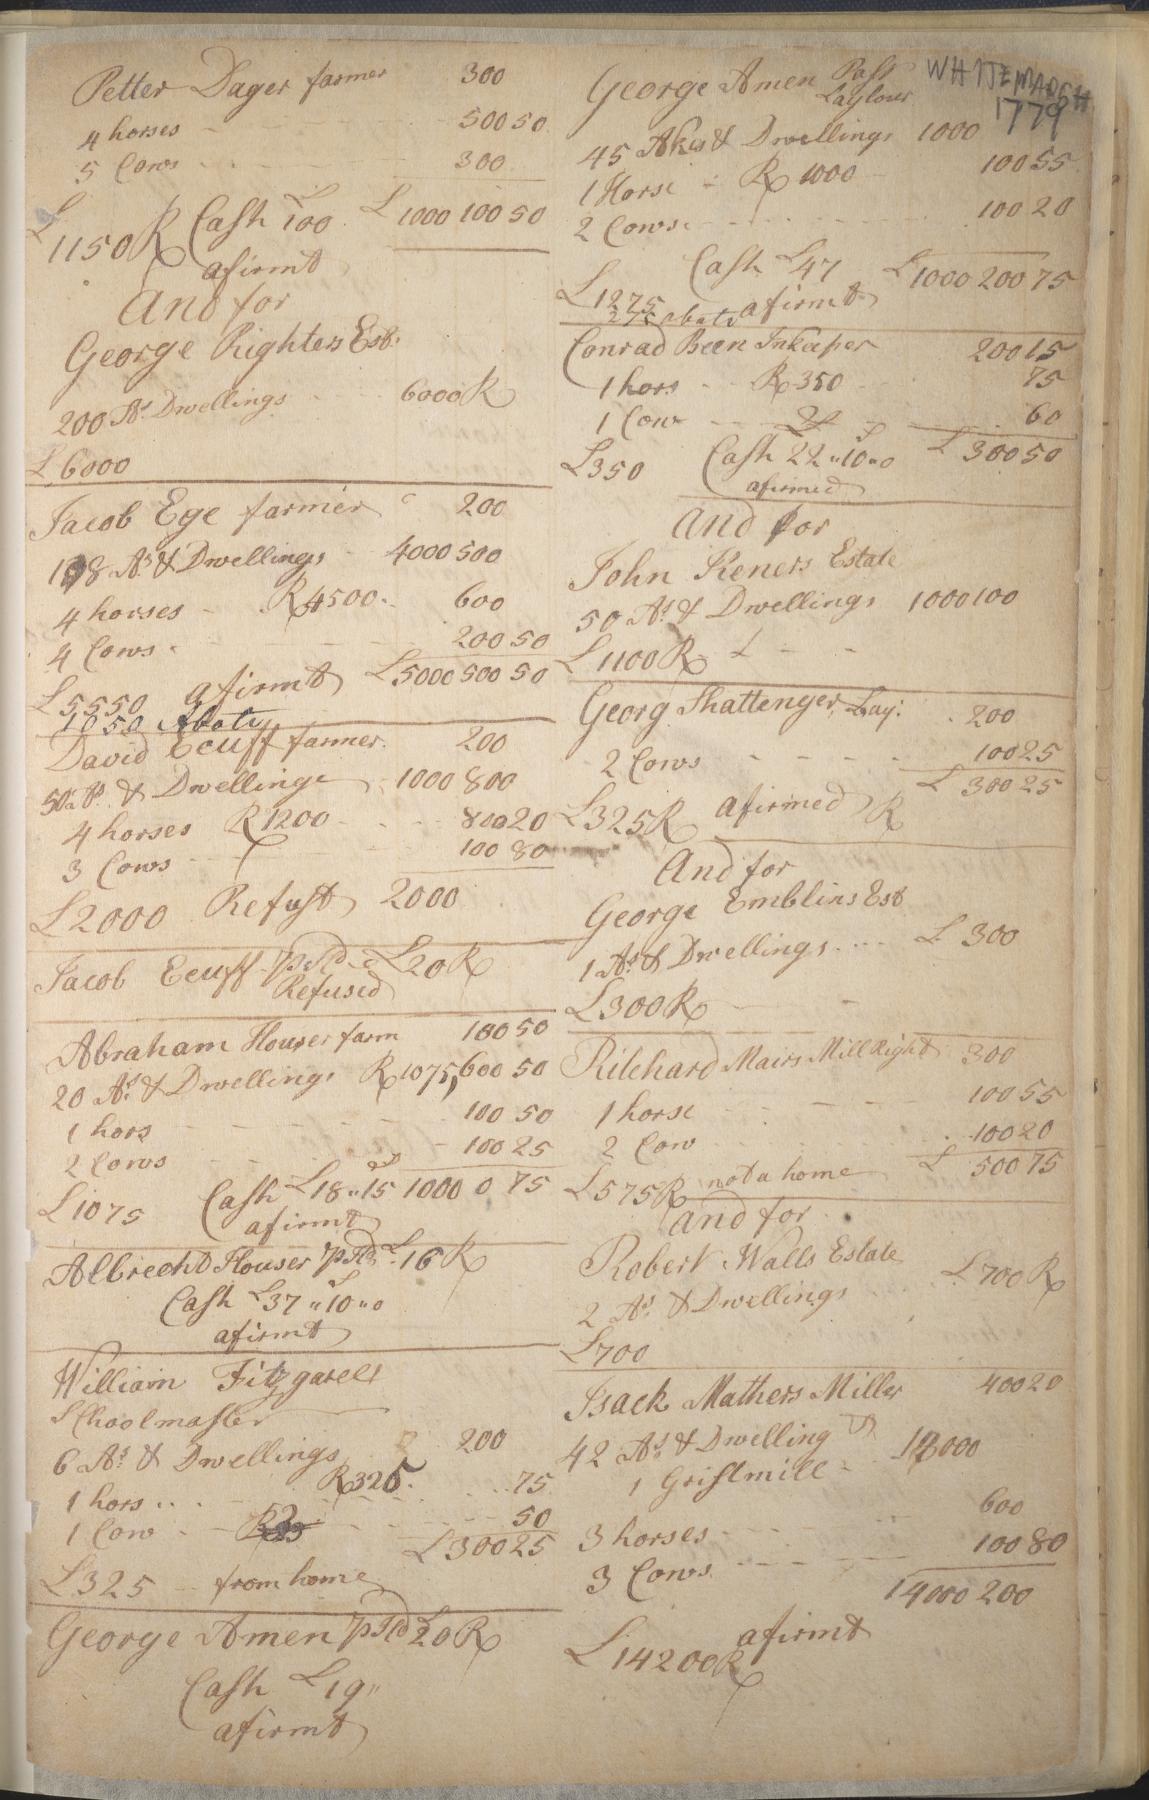 Petter Dager farmer 300
4 horses 500 50
5 Cows 300
£1150 R Cash £100 £1000 100 50
afirmt
And for
George Righters Est:
200 As Dwellings 6000 R
£6000
Jacob Ege farmer 200
198 As & Dwellings 4000 500
4 horses R 4500 600
4 Cows 200 50
£5550 afirmt £5000 500 50
1050 Abate
David Ecuff farmer 200
50 As & Dwellinge 1000 800
4 horses R 1200 800 20
3 Cows 100 80
£2000 Refust 2000
Jacob Ecuff £20 R
Refused
Abraham Houser farm 100 50
20 As & Dwellings R 1075, 600 50
1 hors 100 50
2 Cows 100 25
£1075 Cash £18"15 1000 0 75
afirmt
Albrecht Houser £16 R
Cash £37"10"0
afirmt
William Fitzgarell
Schoolmaster
6 As & Dwellings 200
1 hors R 325 75
1 Cow 50
£325 from home £300 25
George Amen £20 R
Cash £19"
afirmt
WHITEMARSH
1779
George Amen
45 Akes & Dwellings 1000
1 Horse R 1000 100 55
2 Cows 100 20
Cash £47 £1000 200 75
£1275 afirmt
275 abate
Conrad Been Inkeeper 200 15
1 hors R 350 75
1 Cow 60
£350 Cash 22"10"0 £300 50
afirmed
And for
John Keners Estate
50 As & Dwellings 1000 100
£1100 R
Georg Shattenger Lay: 200
2 Cows 100 25
£325 R afirmed R £300 25
And for
George Emblins Est
1 As & Dwellings £300
£300 R
Rilchard Mairs Mill Right 300
1 horse 100 55
2 Cow 100 20
£575 R not a home £500 75
And for
Robert Walls Estate
2 As & Dwellings £700 R
£700
Isack Mathers Miller 400 20
42 As & Dwelling
1 Gristmill
3 horses 600
3 Cows 100 80
14000 200
£14200 R afirmt